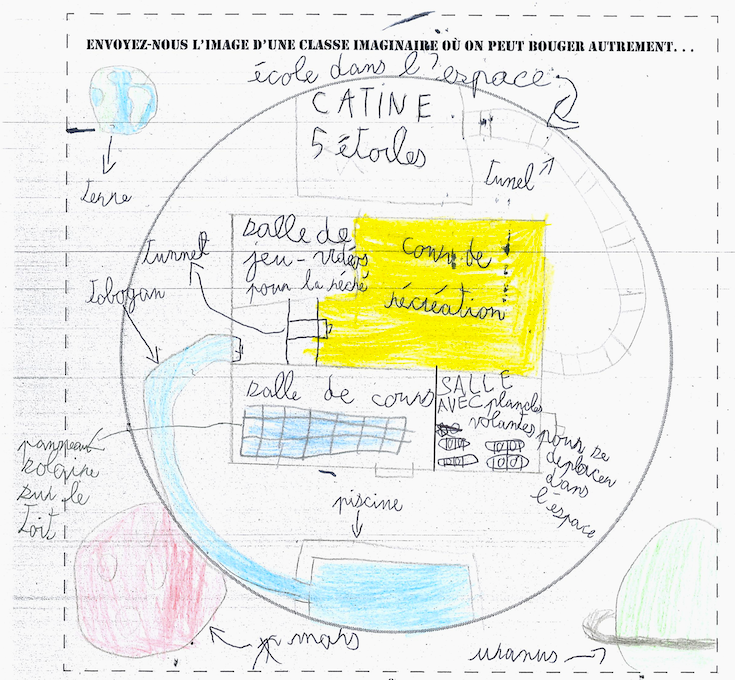 ENVOYEZ-NOUS L'IMAGE D'UNE CLASSE IMAGINAIRE OÙ ON PEUT BOUGER AUTREMENT...
école dans l'espace
CATINE
5 étoiles
tunel
terre
salle de
jeu-vidéos
pour la réché
cour de
récréation
tunnel
tobogan
salle de cours
SALLE
AVEC planches
volantes pour se
deplacer
dans
l'espace
panneau
solaire
sur le
toit
piscine
mars
uranus